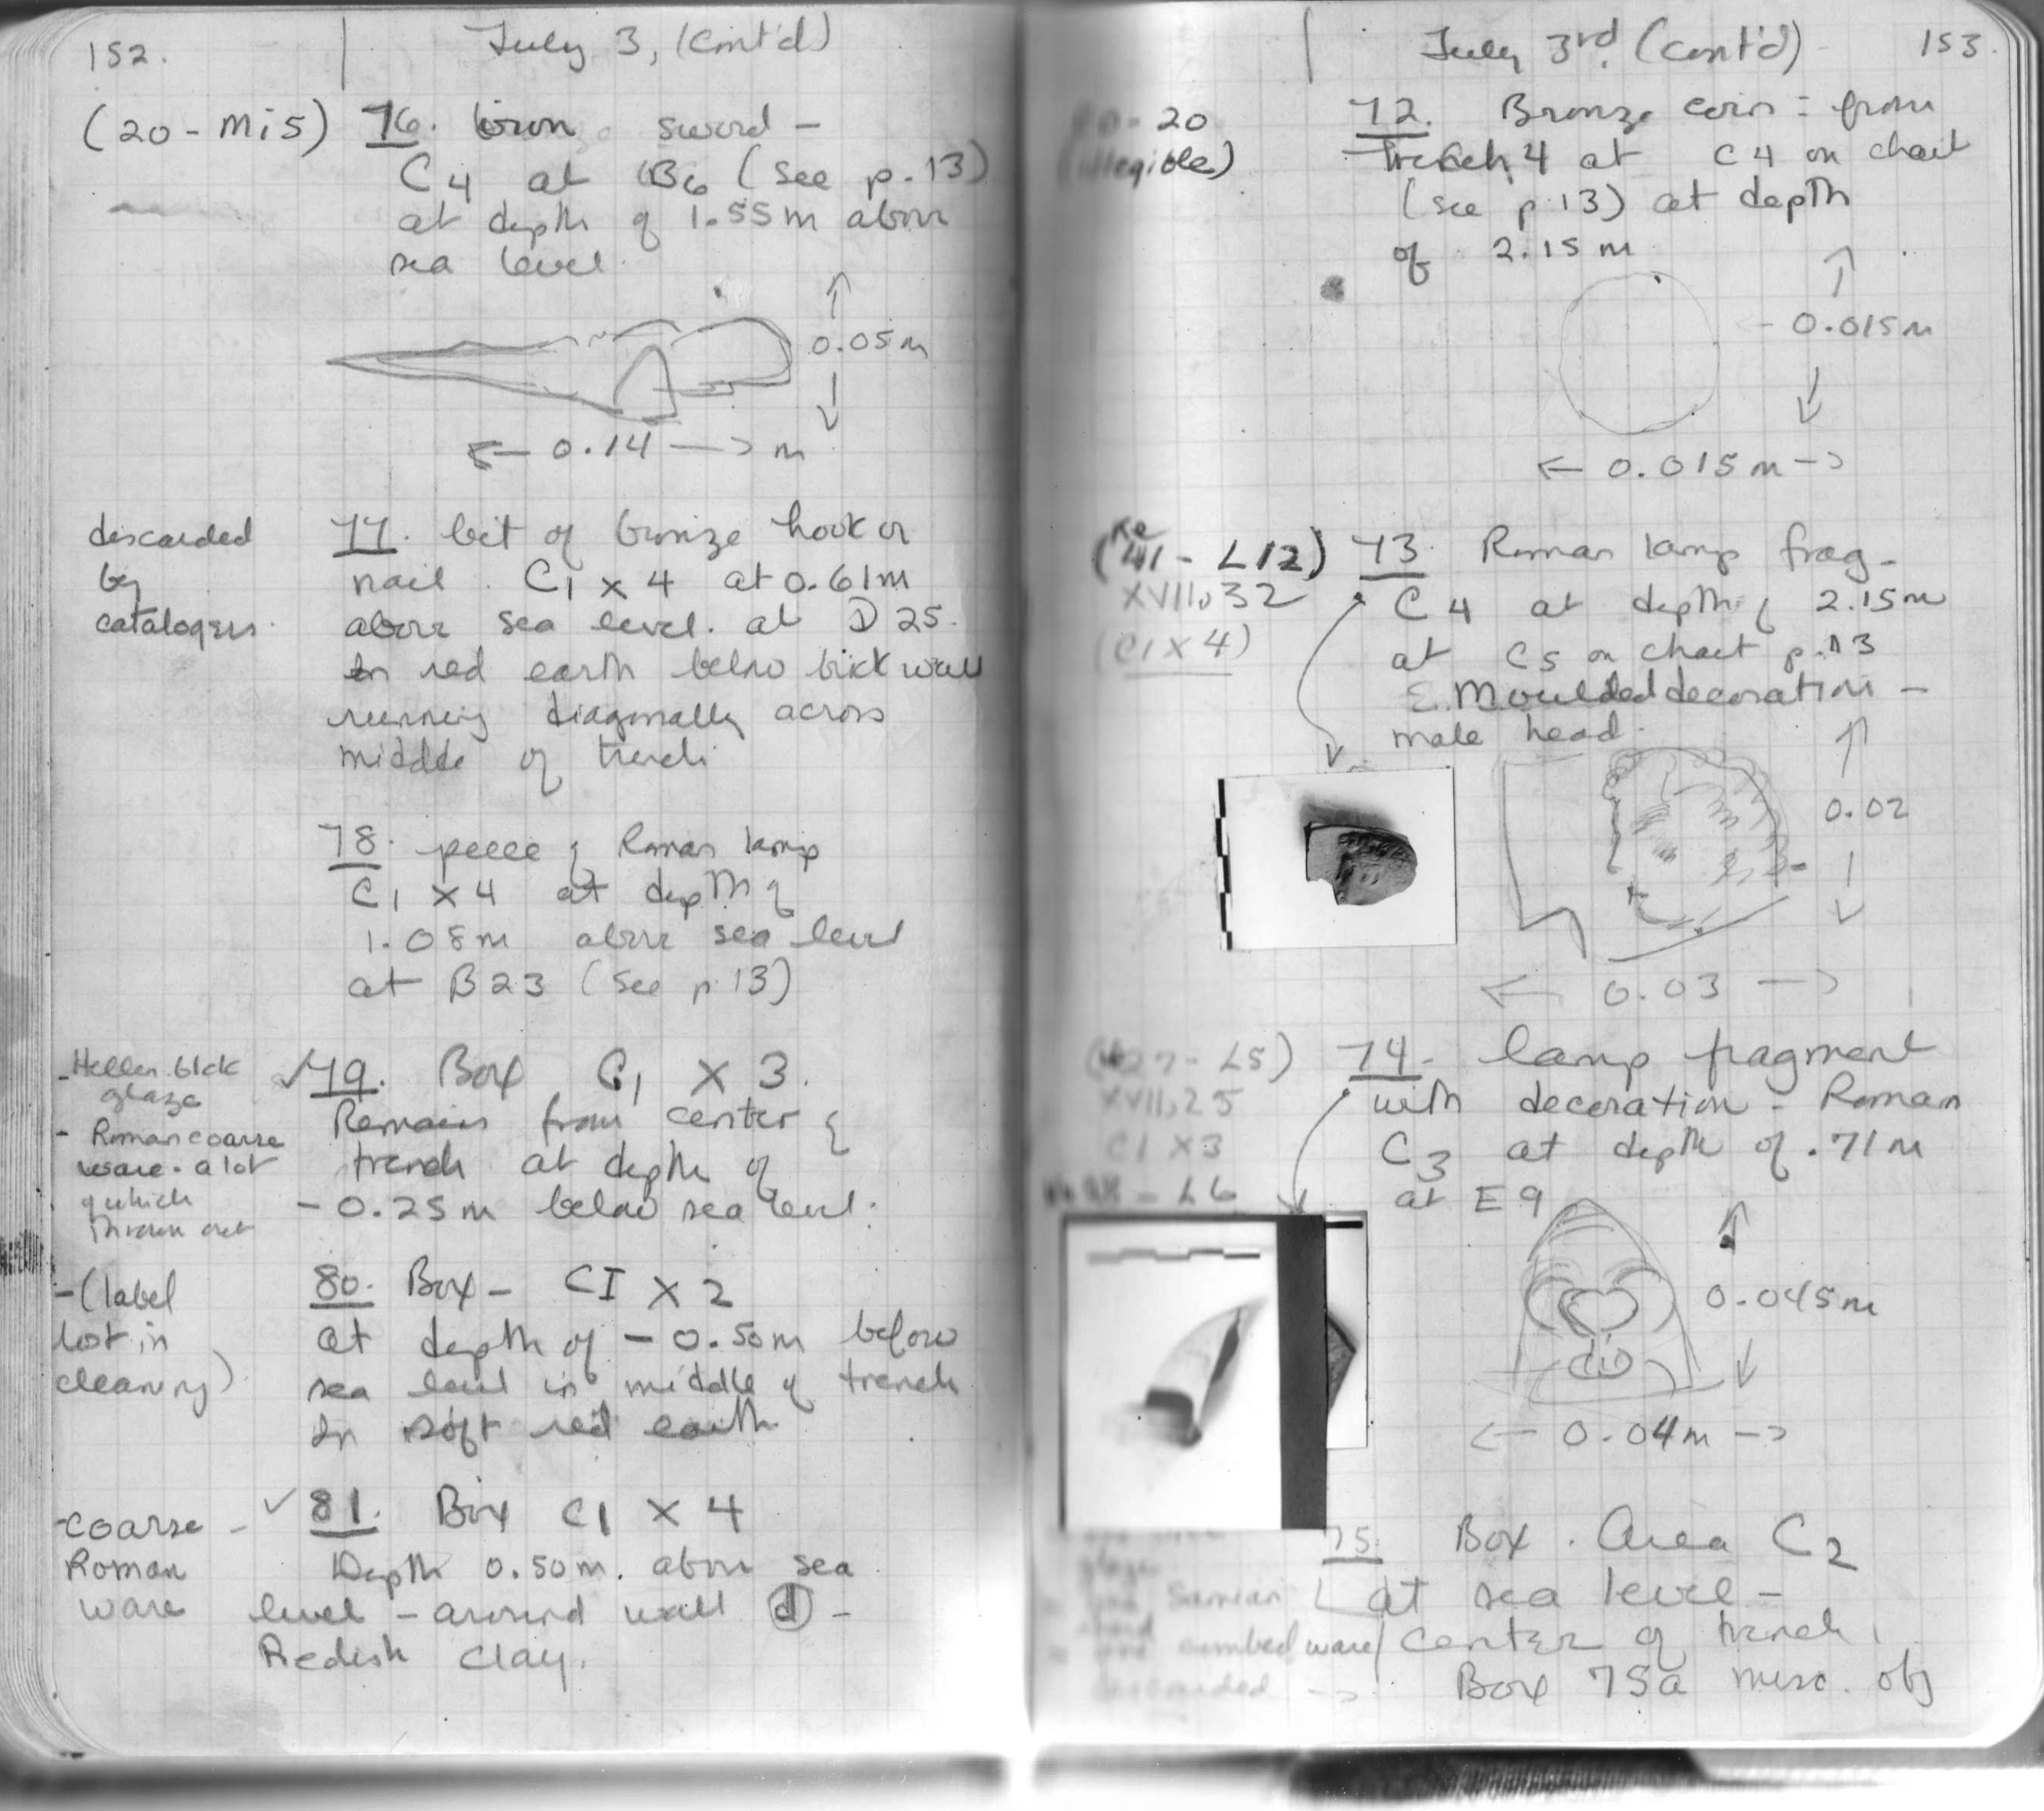 152.
July 3, (Cont'd)
(20 - Mi5) 76. iron sword -
C4 at B6 (see p. 13)
at depth of 1.55m above
sea level.
0.05m
← 0.14 → m
discarded
by
catalogers.
77. bit of bronze hook or
nail. C1 x 4 at 0.61m
above sea level. at D25.
In red earth below brick wall
running diagonally across
middle of trench
78. piece of Roman lamp
C1 x 4 at depth of
1.08m above sea level
at B23 (see p. 13)
- Hellen. blck
glaze
- Roman coarse
ware - a lot
of which
thrown out
✓ 79. Box C1 x 3.
Remains from center of
trench at depth of
- 0.25m below sea level.
- (label
lost in
cleaning)
80. Box - CI x 2
at depth of - 0.50m below
sea level in middle of trench
In soft red earth
- coarse -
Roman
ware
✓ 81. Box C1 x 4
Depth 0.50m. above sea
level - around wall d -
Redish clay.
July 3rd. (Cont'd)
153.
20
(illegible)
72. Bronze coin = from
Trench 4 at C4 on chart
(see p. 13) at depth
of 2.15m
0.015m
← 0.015m →
(Ke
41 - L12)
XVII, 32
(C1 x 4)
73. Roman lamp frag-
C4 at depth of 2.15m
at C5 on chart p. 13
Moulded decoration -
male head.
0.02
← 0.03 →
27 - L5)
XVII, 25
C1 x 3
- L6
74. lamp fragment
with decoration - Roman
C3 at depth of .71m
at E9
0.045m
← 0.04m →
75. Box. Area C2
at sea level -
center of trench.
Box 75a misc. obj
glaze
Samian
combed ware
discarded →